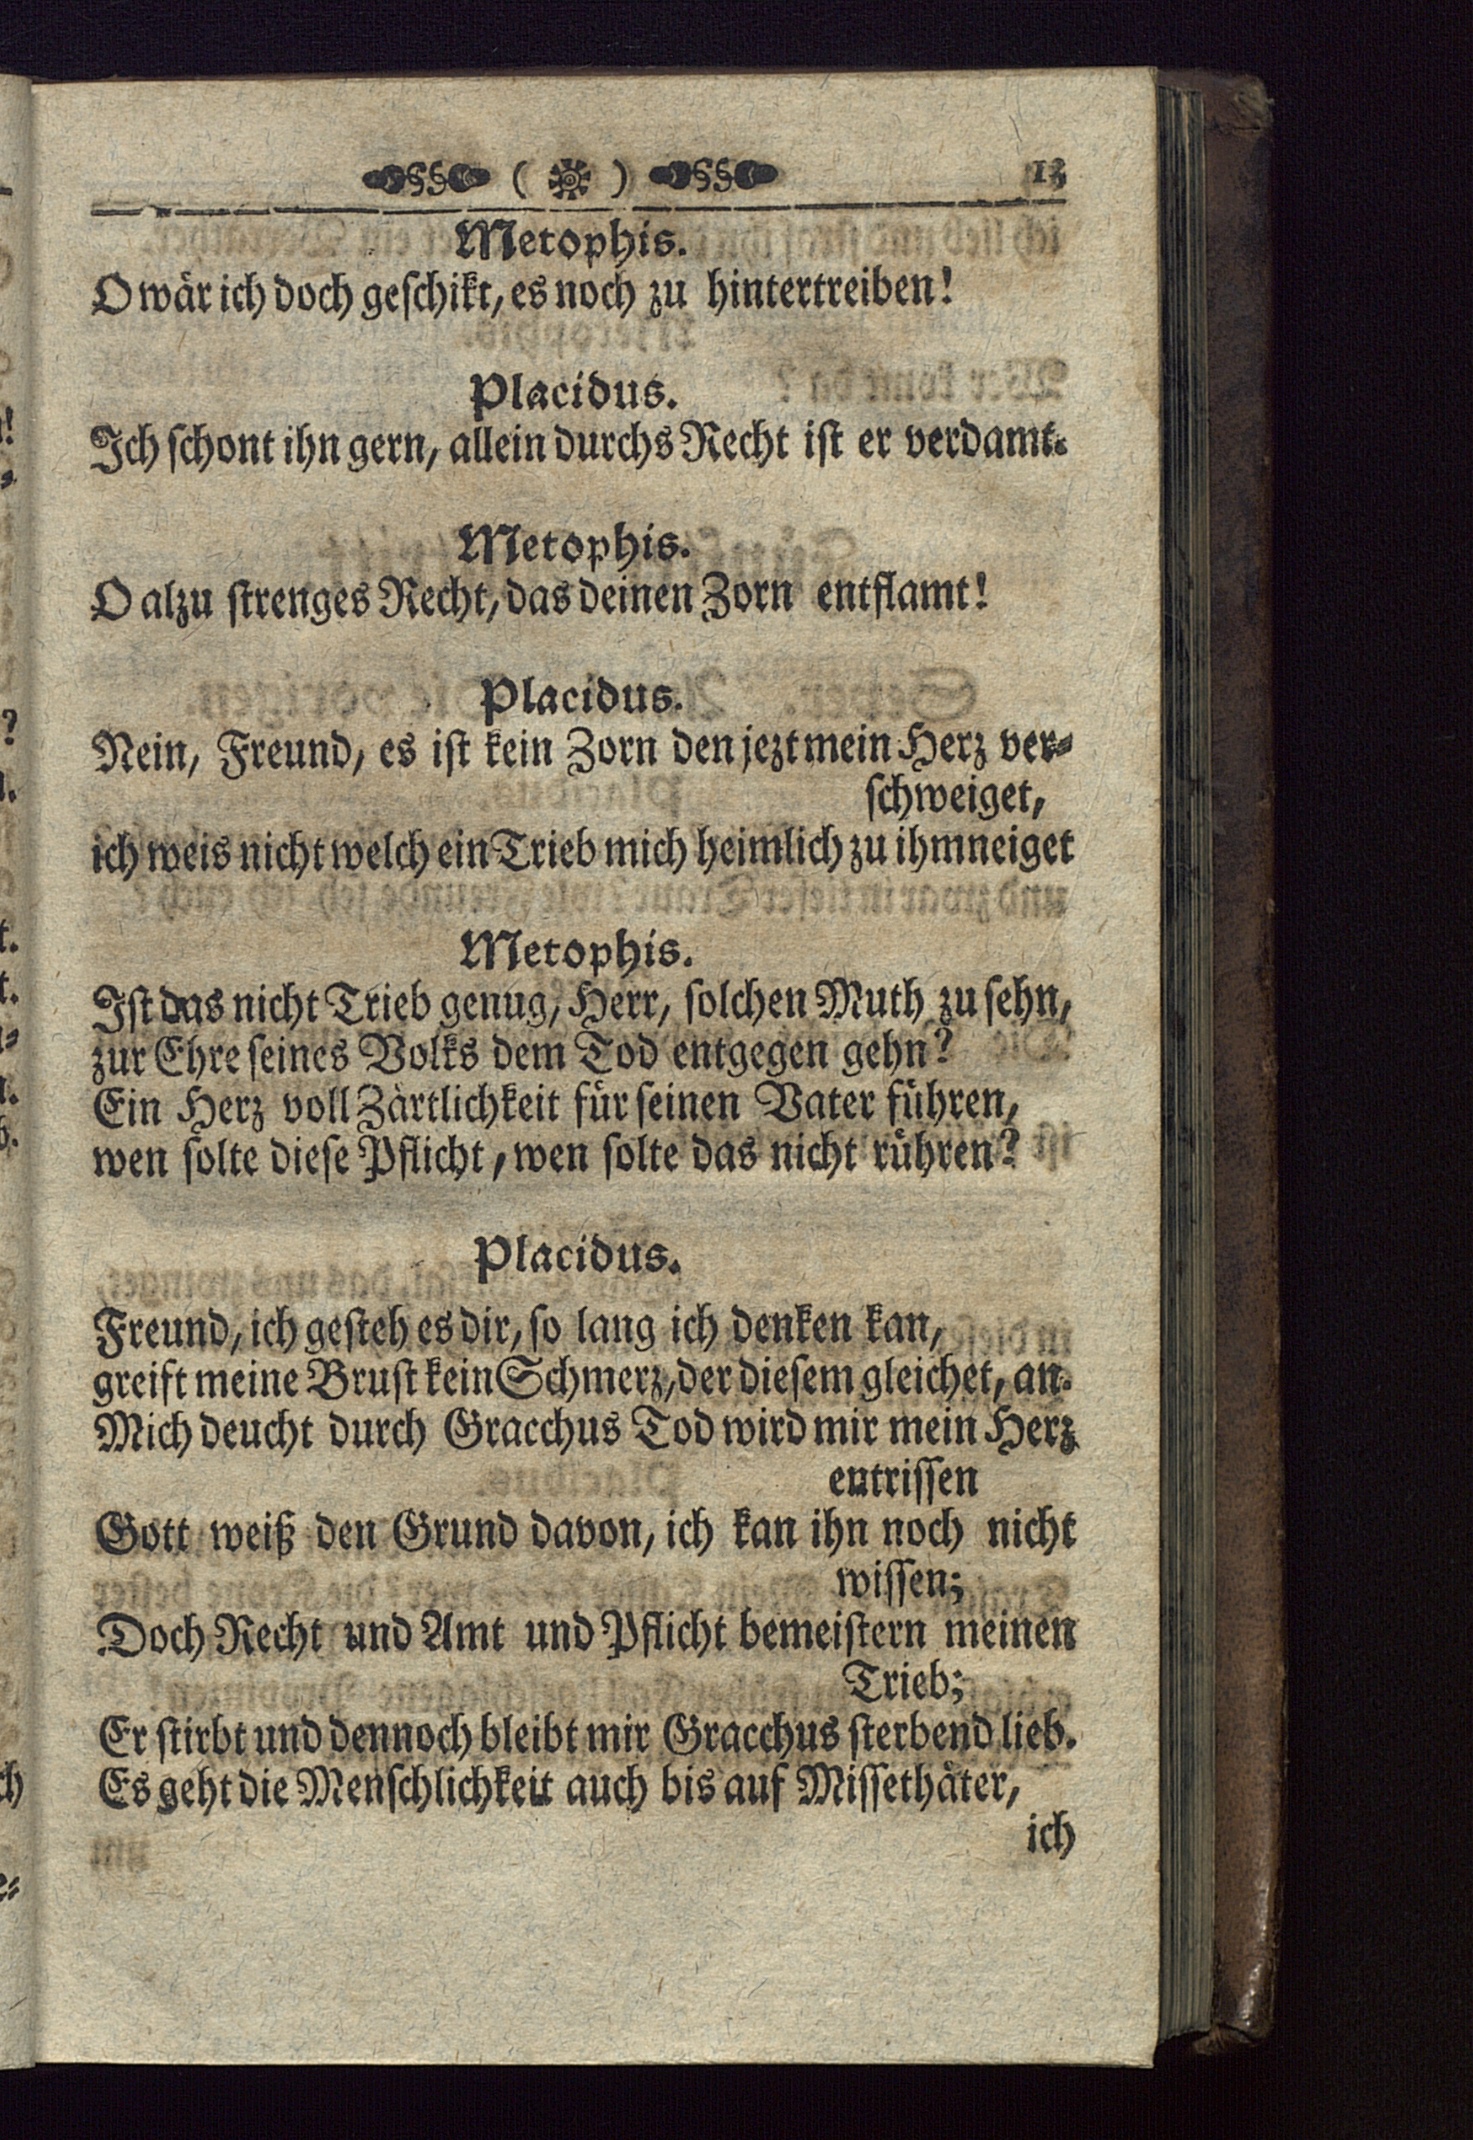 ( ) 13
Metophis.
O wär ich doch geschikt, es noch zu hintertreiben!
Placidus.
Ich schont ihn gern, allein durchs Recht ist er verdamt.
Metophis.
O alzu strenges Recht, das deinen Zorn entflamt!
Placidus.
Nein, Freund, es ist kein Zorn den jezt mein Herz ver-
schweiget,
ich weis nicht welch ein Trieb mich heimlich zu ihm neiget
Metophis.
Ist das nicht Trieb genug, Herr, solchen Muth zu sehn,
zur Ehre seines Volks dem Tod entgegen gehn?
Ein Herz voll Zärtlichkeit für seinen Vater führen,
wen solte diese Pflicht, wen solte das nicht rühren?
Placidus.
Freund, ich gesteh es dir, so lang ich denken kan,
greift meine Brust kein Schmerz, der diesem gleichet, an.
Mich deucht durch Gracchus Tod wird mir mein Herz
entrissen
Gott weiß den Grund davon, ich kan ihn noch nicht
wissen;
Doch Recht und Amt und Pflicht bemeistern meinen
Trieb;
Er stirbt und dennoch bleibt mir Gracchus sterbend lieb.
Es geht die Menschlichkeit auch bis auf Missethäter,
ich